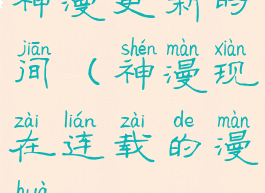 神漫更新的
jiān shén màn xiàn
间（神漫现
zài lián zài de màn
在连载的漫
huà